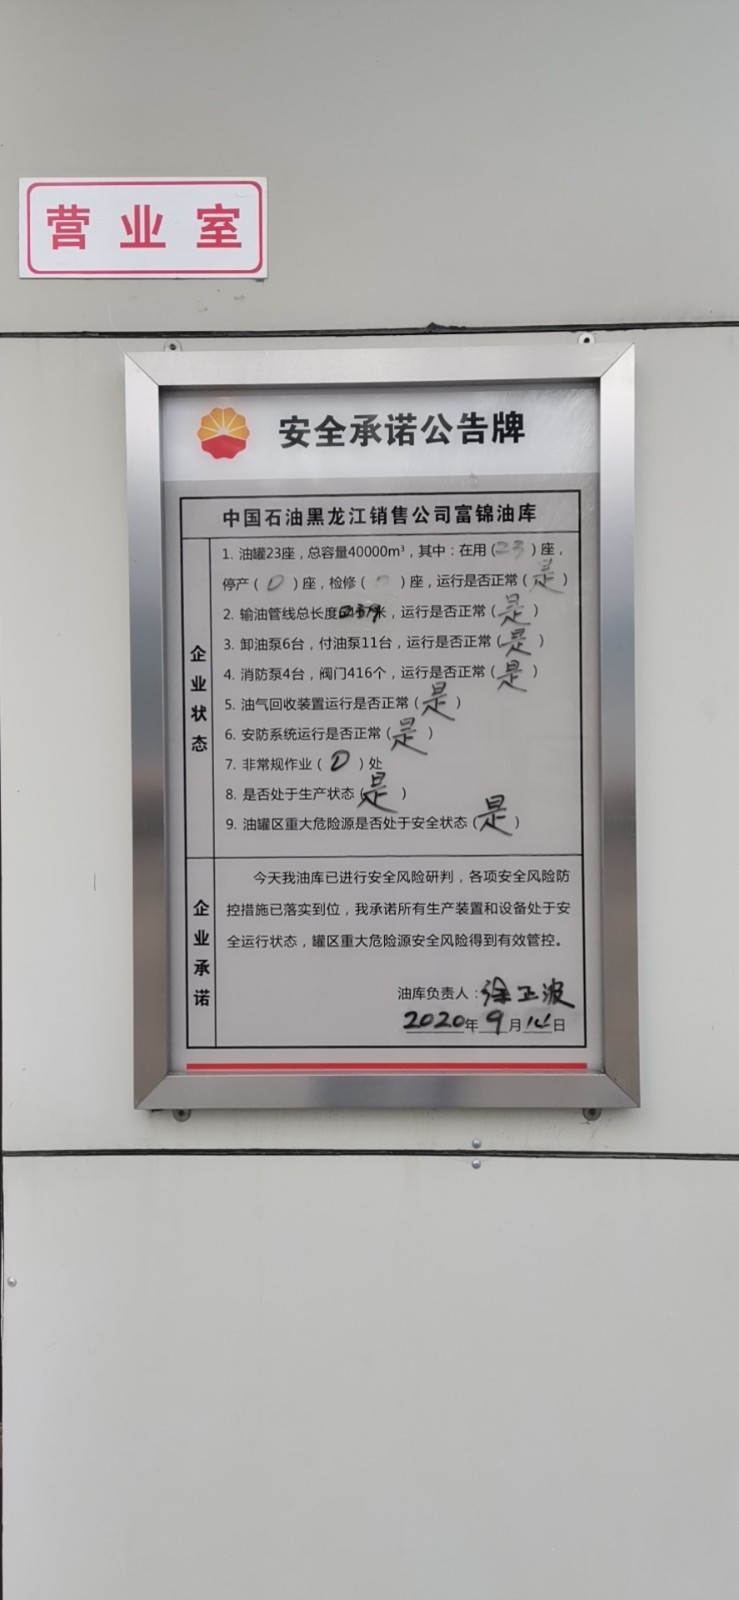 营业室
安全承诺公告牌
中国石油黑龙江销售公司富锦油库
企业状态
1. 油罐23座，总容量40000m³，其中：在用（23）座，
停产（0）座，检修（ ）座，运行是否正常（是）
2. 输油管线总长度 米，运行是否正常（是）
3. 卸油泵6台，付油泵11台，运行是否正常（是）
4. 消防泵4台，阀门416个，运行是否正常（是）
5. 油气回收装置运行是否正常（是）
6. 安防系统运行是否正常（是）
7. 非常规作业（0）处
8. 是否处于生产状态（是）
9. 油罐区重大危险源是否处于安全状态（是）
企业承诺
今天我油库已进行安全风险研判，各项安全风险防
控措施已落实到位，我承诺所有生产装置和设备处于安
全运行状态，罐区重大危险源安全风险得到有效管控。
油库负责人：徐正波
2020年9月14日